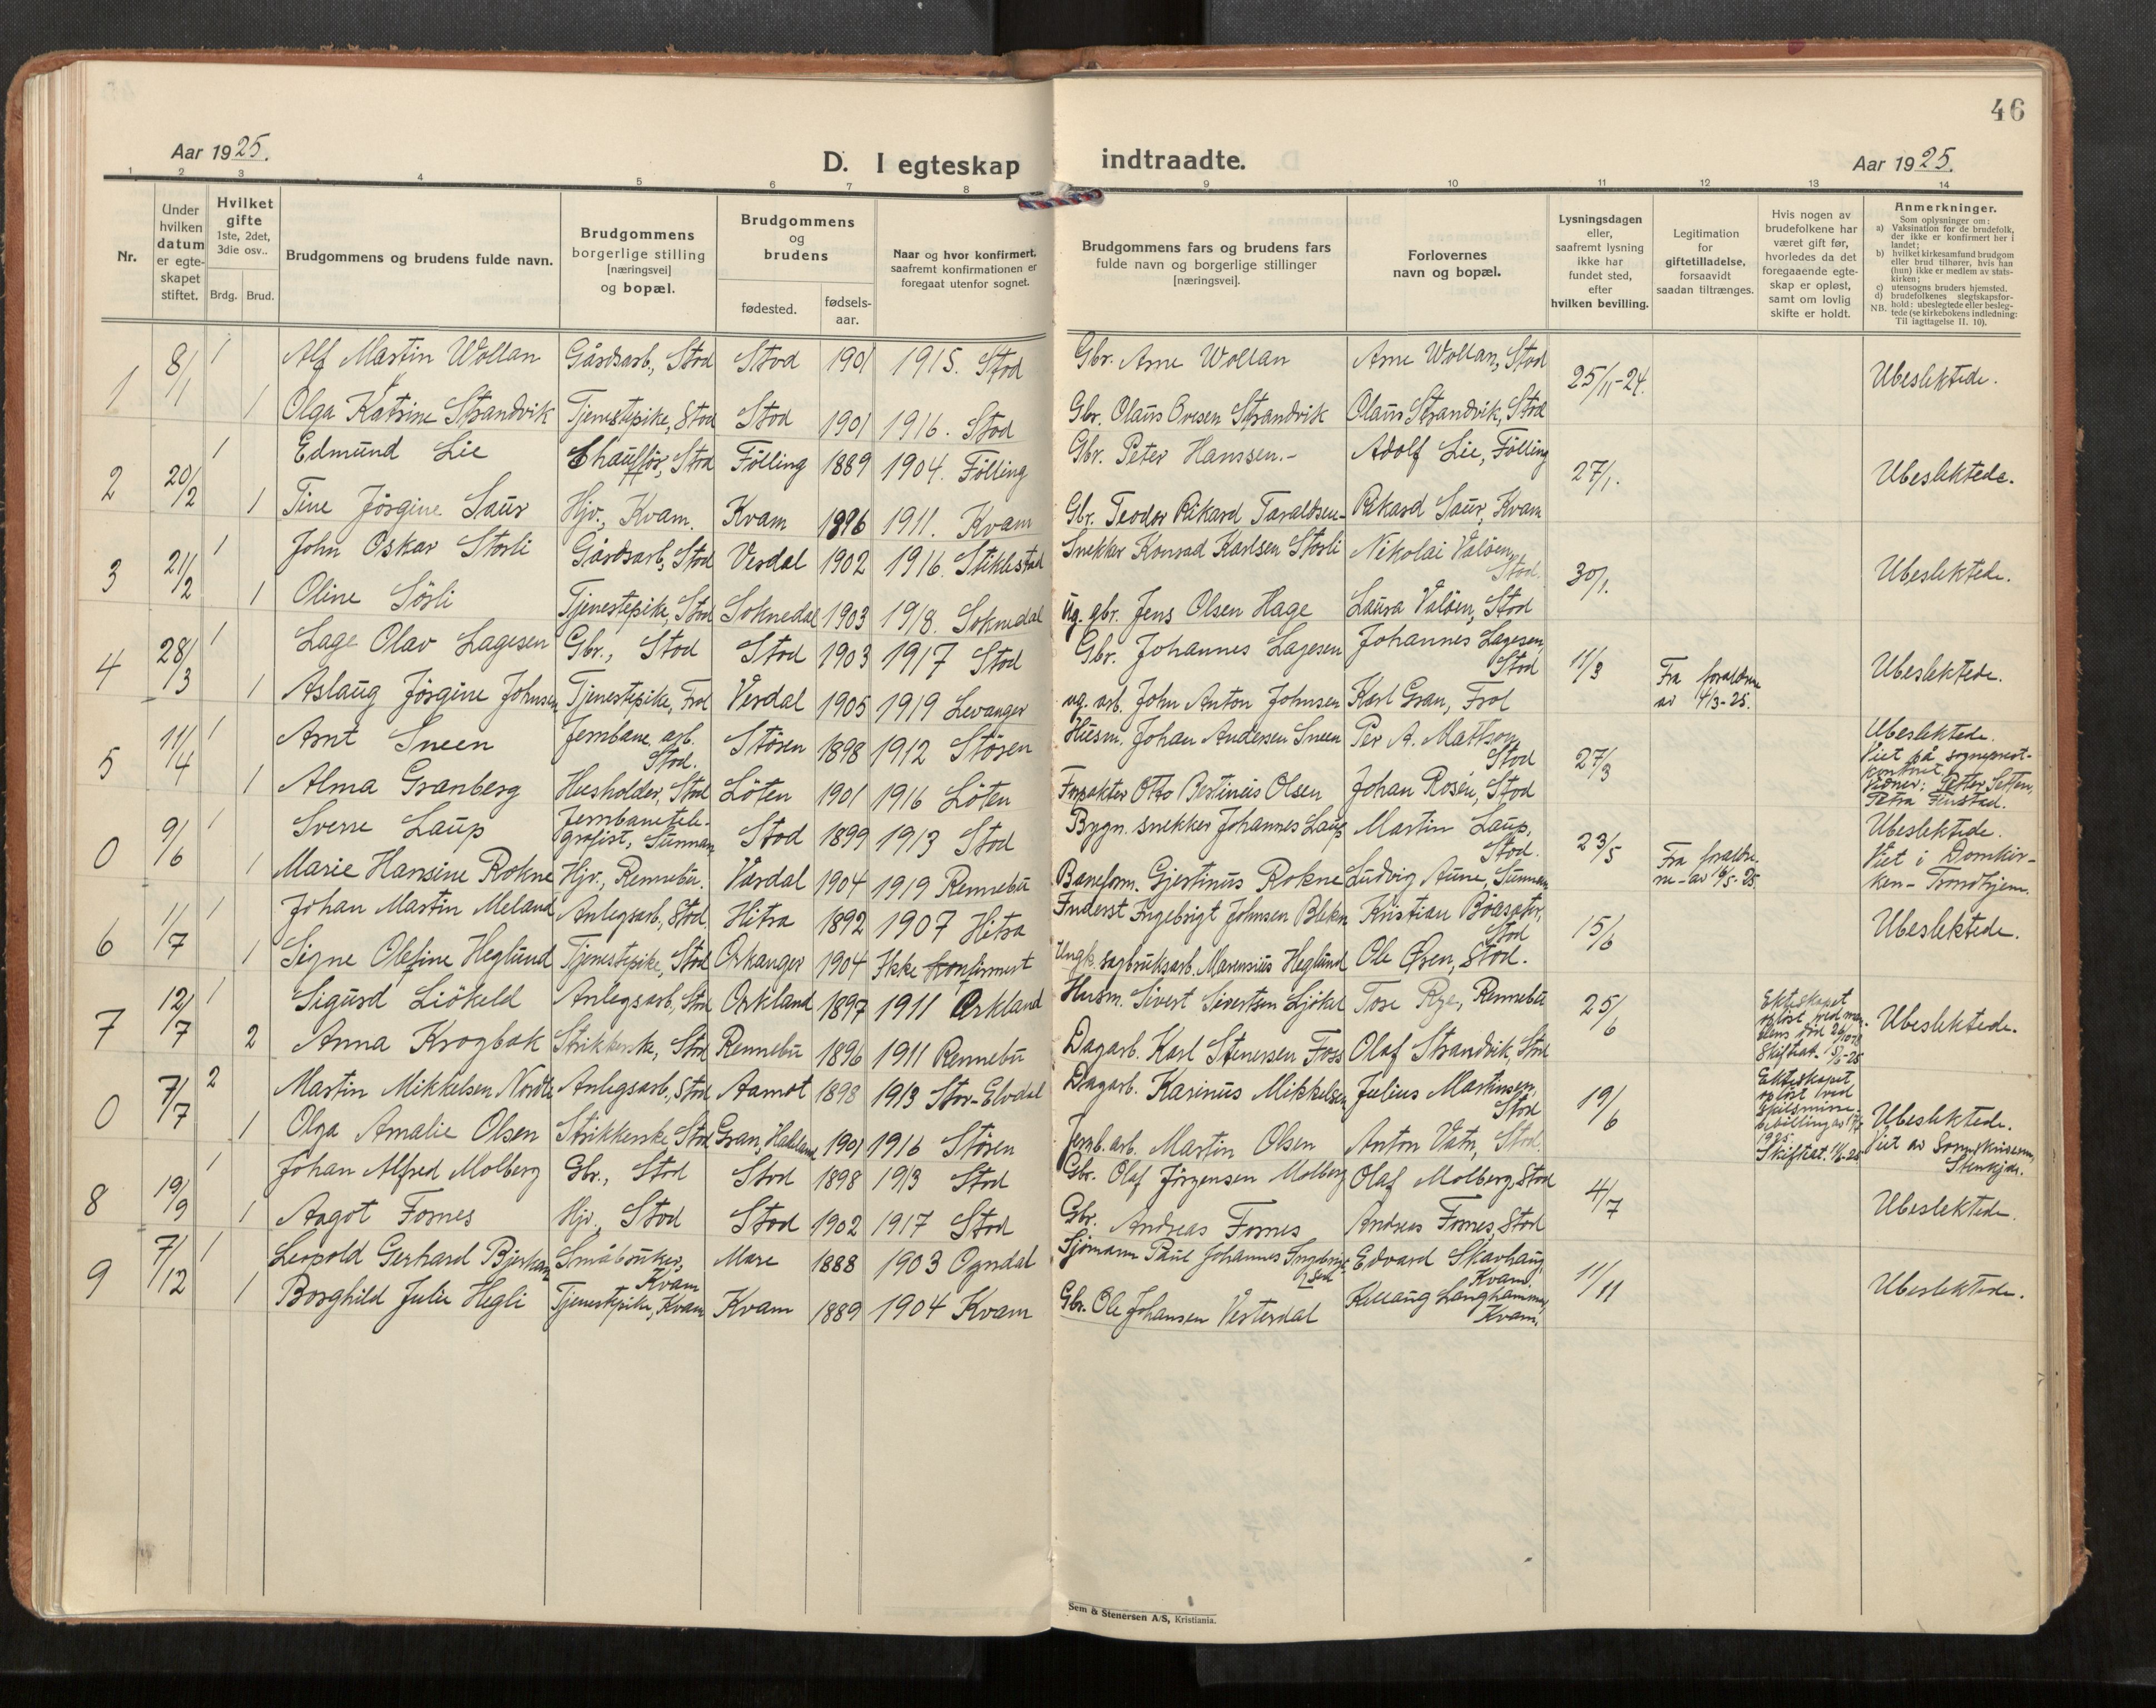 46
Aar 1925.
D. I egteskap indtraadte.
Aar 1925.
1 2 3 4 5 6 7 8 9 10 11 12 13 14
Nr.
Under hvilken datum er egte-skapet stiftet.
Hvilket gifte 1ste, 2det, 3die osv..
Brdg. Brud.
Brudgommens og brudens fulde navn.
Brudgommens borgerlige stilling [næringsvei] og bopæl.
Brudgommens og brudens
fødested.
fødsels-aar.
Naar og hvor konfirmert, saafremt konfirmationen er foregaat utenfor sognet.
Brudgommens fars og brudens fars fulde navn og borgerlige stillinger [næringsvei].
Forlovernes navn og bopæl.
Lysningsdagen eller, saafremt lysning ikke har fundet sted, efter hvilken bevilling.
Legitimation for giftetilladelse, forsaavidt saadan tiltrænges.
Hvis nogen av brudefolkene har været gift før, hvorledes da det foregaaende egte-skap er opløst, samt om lovlig skifte er holdt.
Anmerkninger.
Som oplysninger om:
a) Vaksination for de brudefolk, der ikke er konfirmert her i landet;
b) hvilket kirkesamfund brudgom eller brud tilhører, hvis han (hun) ikke er medlem av stats-kirken;
c) utensogns bruders hjemsted.
d) brudefolkenes slegtskapsfor-hold: ubeslegtede eller besleg-tede (se kirkebokens indledning: Til iagttagelse II. 10).
NB.
1 8/1 1 Alf Martin Wollan Gårdsarb., Stod Stod 1901 1915. Stod Gbr. Arne Wollan Arne Wollan, Stod 25/11-24. Ubeslektede.
1 Olga Katrine Strandvik Tjenestepike, Stod Stod 1901 1916. Stod Gbr. Olaus Ovesen Strandvik Olaus Strandvik, Stod
2 20/2 1 Edmund Lie Chauffør, Stod Følling 1889 1904. Følling Gbr. Peter Hanssen.- Adolf Lie, Følling 27/1. Ubeslektede.
1 Tine Jørgine Saur Hjv., Kvam. Kvam 1896 1911. Kvam Gbr. Teodor Rikard Taraldsen- Rikard Saur, Kvam
3 21/2 1 John Oskar Storli Gårdsarb., Stod Verdal 1902 1916. Stiklestad Snekker Konrad Karlsen Storli Nikolai Valøen, Stod. 30/1. Ubeslektede.
1 Oline Sørli Tjenestepike, Stod Soknedal 1903 1918. Soknedal ug. gbr. Jens Olsen Hage Laura Valøen, Stod
4 28/3 1 Lage Olav Lagesen Gbr., Stod Stod 1903 1917 Stod Gbr. Johannes Lagesen Johannes Lagesen, Stod 11/3 Fra foreldrene av 4/3-25. Ubeslektede.
1 Aslaug Jørgine Johnsen Tjenestepike, Frol Verdal 1905 1919 Levanger ug. arb. John Anton Johnsen Karl Gran, Frol
5 11/4 1 Arnt Sneen Jernbane. arb. Stod. Støren 1898 1912 Støren Husm. Johan Andersen Sneen Per A. Matson Stod 27/3 Ubeslektede. Viet på sogneprest-kontoret. Vidner: Petter Setten, Petra Finstad.
1 Alma Granberg Husholder, Stod Løten 1901 1916 Løten Forpakter Otto Bertineus Olsen Johan Rosén, Stod
0 9/6 1 Sverre Laup Jernbanetele-grafist, Sunnan Stod 1899 1913 Stod Bygn. snekker Johannes Laup Martin Laup, Stod. 23/5 Fra foreldre-ne - av 6/5-25. Ubeslektede. Viet i Domkir-ken - Trondhjem.
1 Marie Hansine Rokne Hjv., Rennebu. Værdal 1904 1919 Rennebu Baneform. Gjertinus Rokne Ludvig Aune, Sunnan
6 11/7 1 Johan Martin Meland Anlegsarb., Stod Hitra 1892 1907 Hitra Inderst Ingebrigt Johnsen Blekn Kristian Bøaseter, Stod 15/6 Ubeslektede.
1 Signe Olefine Heglund Tjenestepike, Stod Orkanger 1904 Ikke konfirmert Ungk. sagbruksarb. Marensius Heglund Ole Øren, Stod.
7 12/7 1 Sigurd Liökeld Anlegsarb., Stod Orkland 1897 1911 Orkland Husm. Sivert Sivertsen Ljökel Tore Rye, Rennebu 25/6 Ekteskapet opløst ved mannens død 26/10 Skifteat. 15/5-25 Ubeslektede.
2 Anna Krogbak Strikkerske, Stod Rennebu 1896 1911 Rennebu Dagarb. Karl Stenersen Foss Olaf Strandvik, Stod
0 7/7 2 Martin Mikkelsen Nordli Anlegsarb., Stod Aamot 1898 1913 Stor-Elvdal Dagarb. Karinus Mikkelsen Julius Martinsen, Stod 19/6 Ekteskapet opløst ved skilsmisse-bevilling av 1925. Skifteat. 11/6-25 Ubeslektede. Viet av Sorenskriveren, Stenkjær.
1 Olga Amalie Olsen Strikkerske Stod Gran, Hadeland 1901 1916 Støren Jernb. arb. Martin Olsen Anton Vatn, Stod.
8 19/9 1 Johan Alfred Molberg Gbr., Stod Stod 1898 1913 Stod Gbr. Olaf Jörgensen Molberg Olaf Molberg, Stod 4/7 Ubeslektede.
1 Aagot Fornes Hjv., Stod Stod 1902 1917 Stod Gbr. Andreas Fornes Andreas Fornes, Stod
9 7/12 1 Leopold Gerhard Bjerkan Småbruker, Kvam Mære 1888 1903 Ogndal Sjömann Paul Johannes Edvard Skavhaug, Kvam. 11/11 Ubeslektede.
1 Borghild Julie Hegli Tjenestepike, Kvam Kvam 1889 1904 Kvam Gbr. Ole Johansen Vesterdal Langhammer, Kvam.
Sem & Stenersen A/S, Kristiania.